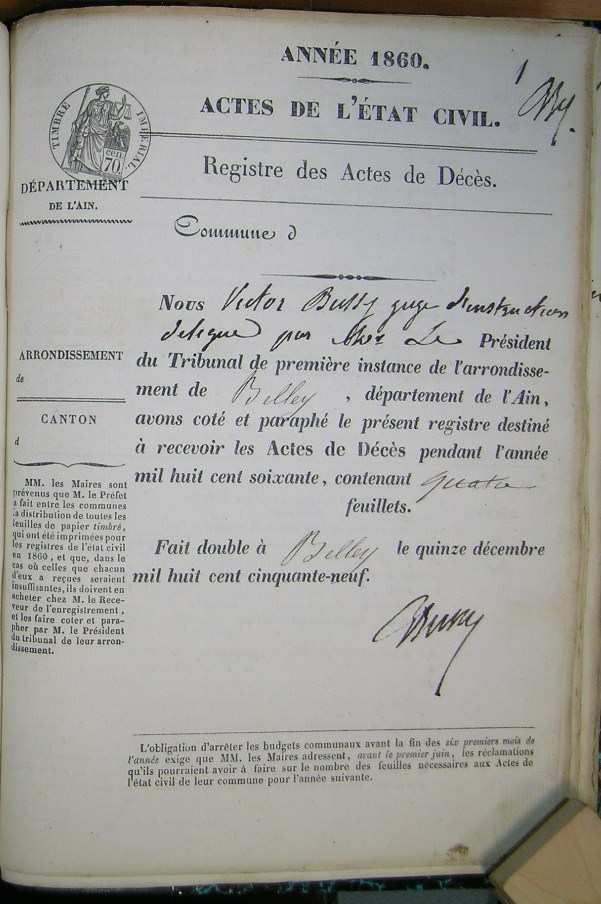 ANNÉE 1860.
1
ACTES DE L'ÉTAT CIVIL.
TIMBRE IMPÉRIAL
70 cen
Registre des Actes de Décès.
DÉPARTEMENT
DE L'AIN.
Commune d
Nous Victor Bussy juge d'instruction
délégué par Mr Le Président
du Tribunal de première instance de l'arrondisse-
ment de Belley, département de l'Ain,
avons coté et paraphé le présent registre destiné
à recevoir les Actes de Décès pendant l'année
mil huit cent soixante, contenant quatre
feuillets.
Fait double à Belley le quinze décembre
mil huit cent cinquante-neuf.
Bussy
ARRONDISSEMENT
de
CANTON
d
MM. les Maires sont
prévenus que M. le Préfet
a fait entre les communes
la distribution de toutes les
feuilles de papier timbré,
qui ont été imprimées pour
les registres de l'état civil
en 1860, et que, dans le
cas où celles que chacun
d'eux a reçues seraient
insuffisantes, ils doivent en
acheter chez M. le Rece-
veur de l'enregistrement,
et les faire coter et para-
pher par M. le Président
du tribunal de leur arron-
dissement.
L'obligation d'arrêter les budgets communaux avant la fin des six premiers mois de
l'année exige que MM. les Maires adressent, avant le premier juin, les réclamations
qu'ils pourraient avoir à faire sur le nombre des feuilles nécessaires aux Actes de
l'état civil de leur commune pour l'année suivante.